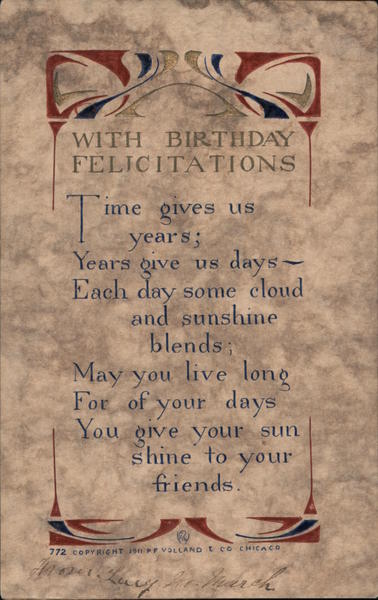 WITH BIRTHDAY
FELICITATIONS
Time gives us
years;
Years give us days—
Each day some cloud
and sunshine
blends;
May you live long
For of your days
You give your sun
shine to your
friends.
772 COPYRIGHT 1911 P F VOLLAND & CO CHICAGO
From Lucy March